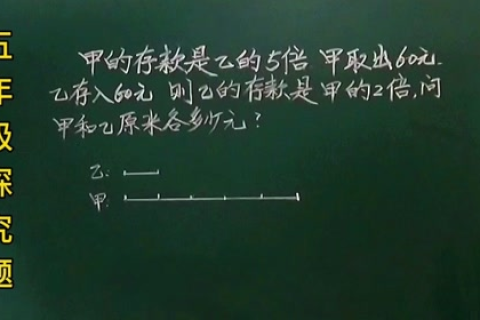 五年级探究题
甲的存款是乙的5倍 甲取出60元.
乙存入60元 则乙的存款是甲的2倍,问
甲和乙原来各多少元?
乙:
甲: